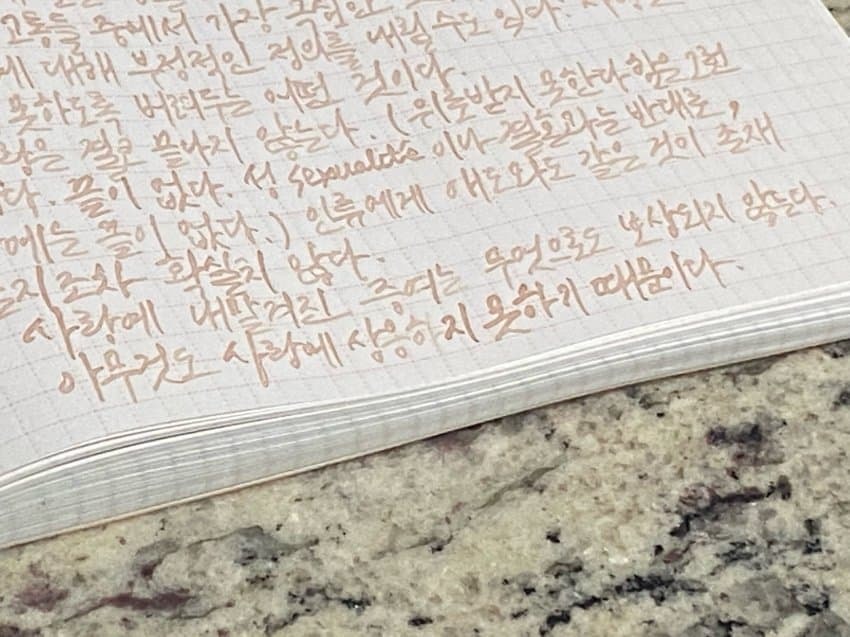 고통들 중에서 가장
에 대해 부정적인 정의를 내릴 수도 있다.
못하도록 버려두는 어떤 것이다.
랑은 결코 끝나지 않는다. (위로받지 못한다 함은
다. 끝이 없다. 성 sexualité 이나 결혼과는 반대로,
에는 끝이 없다.) 인류에게 애도와도 같은 것이 존재
는지조차 확실치 않다.
사랑에 내맡겨진 증여는 무엇으로도 보상되지 않는다.
아무것도 사랑에 상응하지 못하기 때문이다.